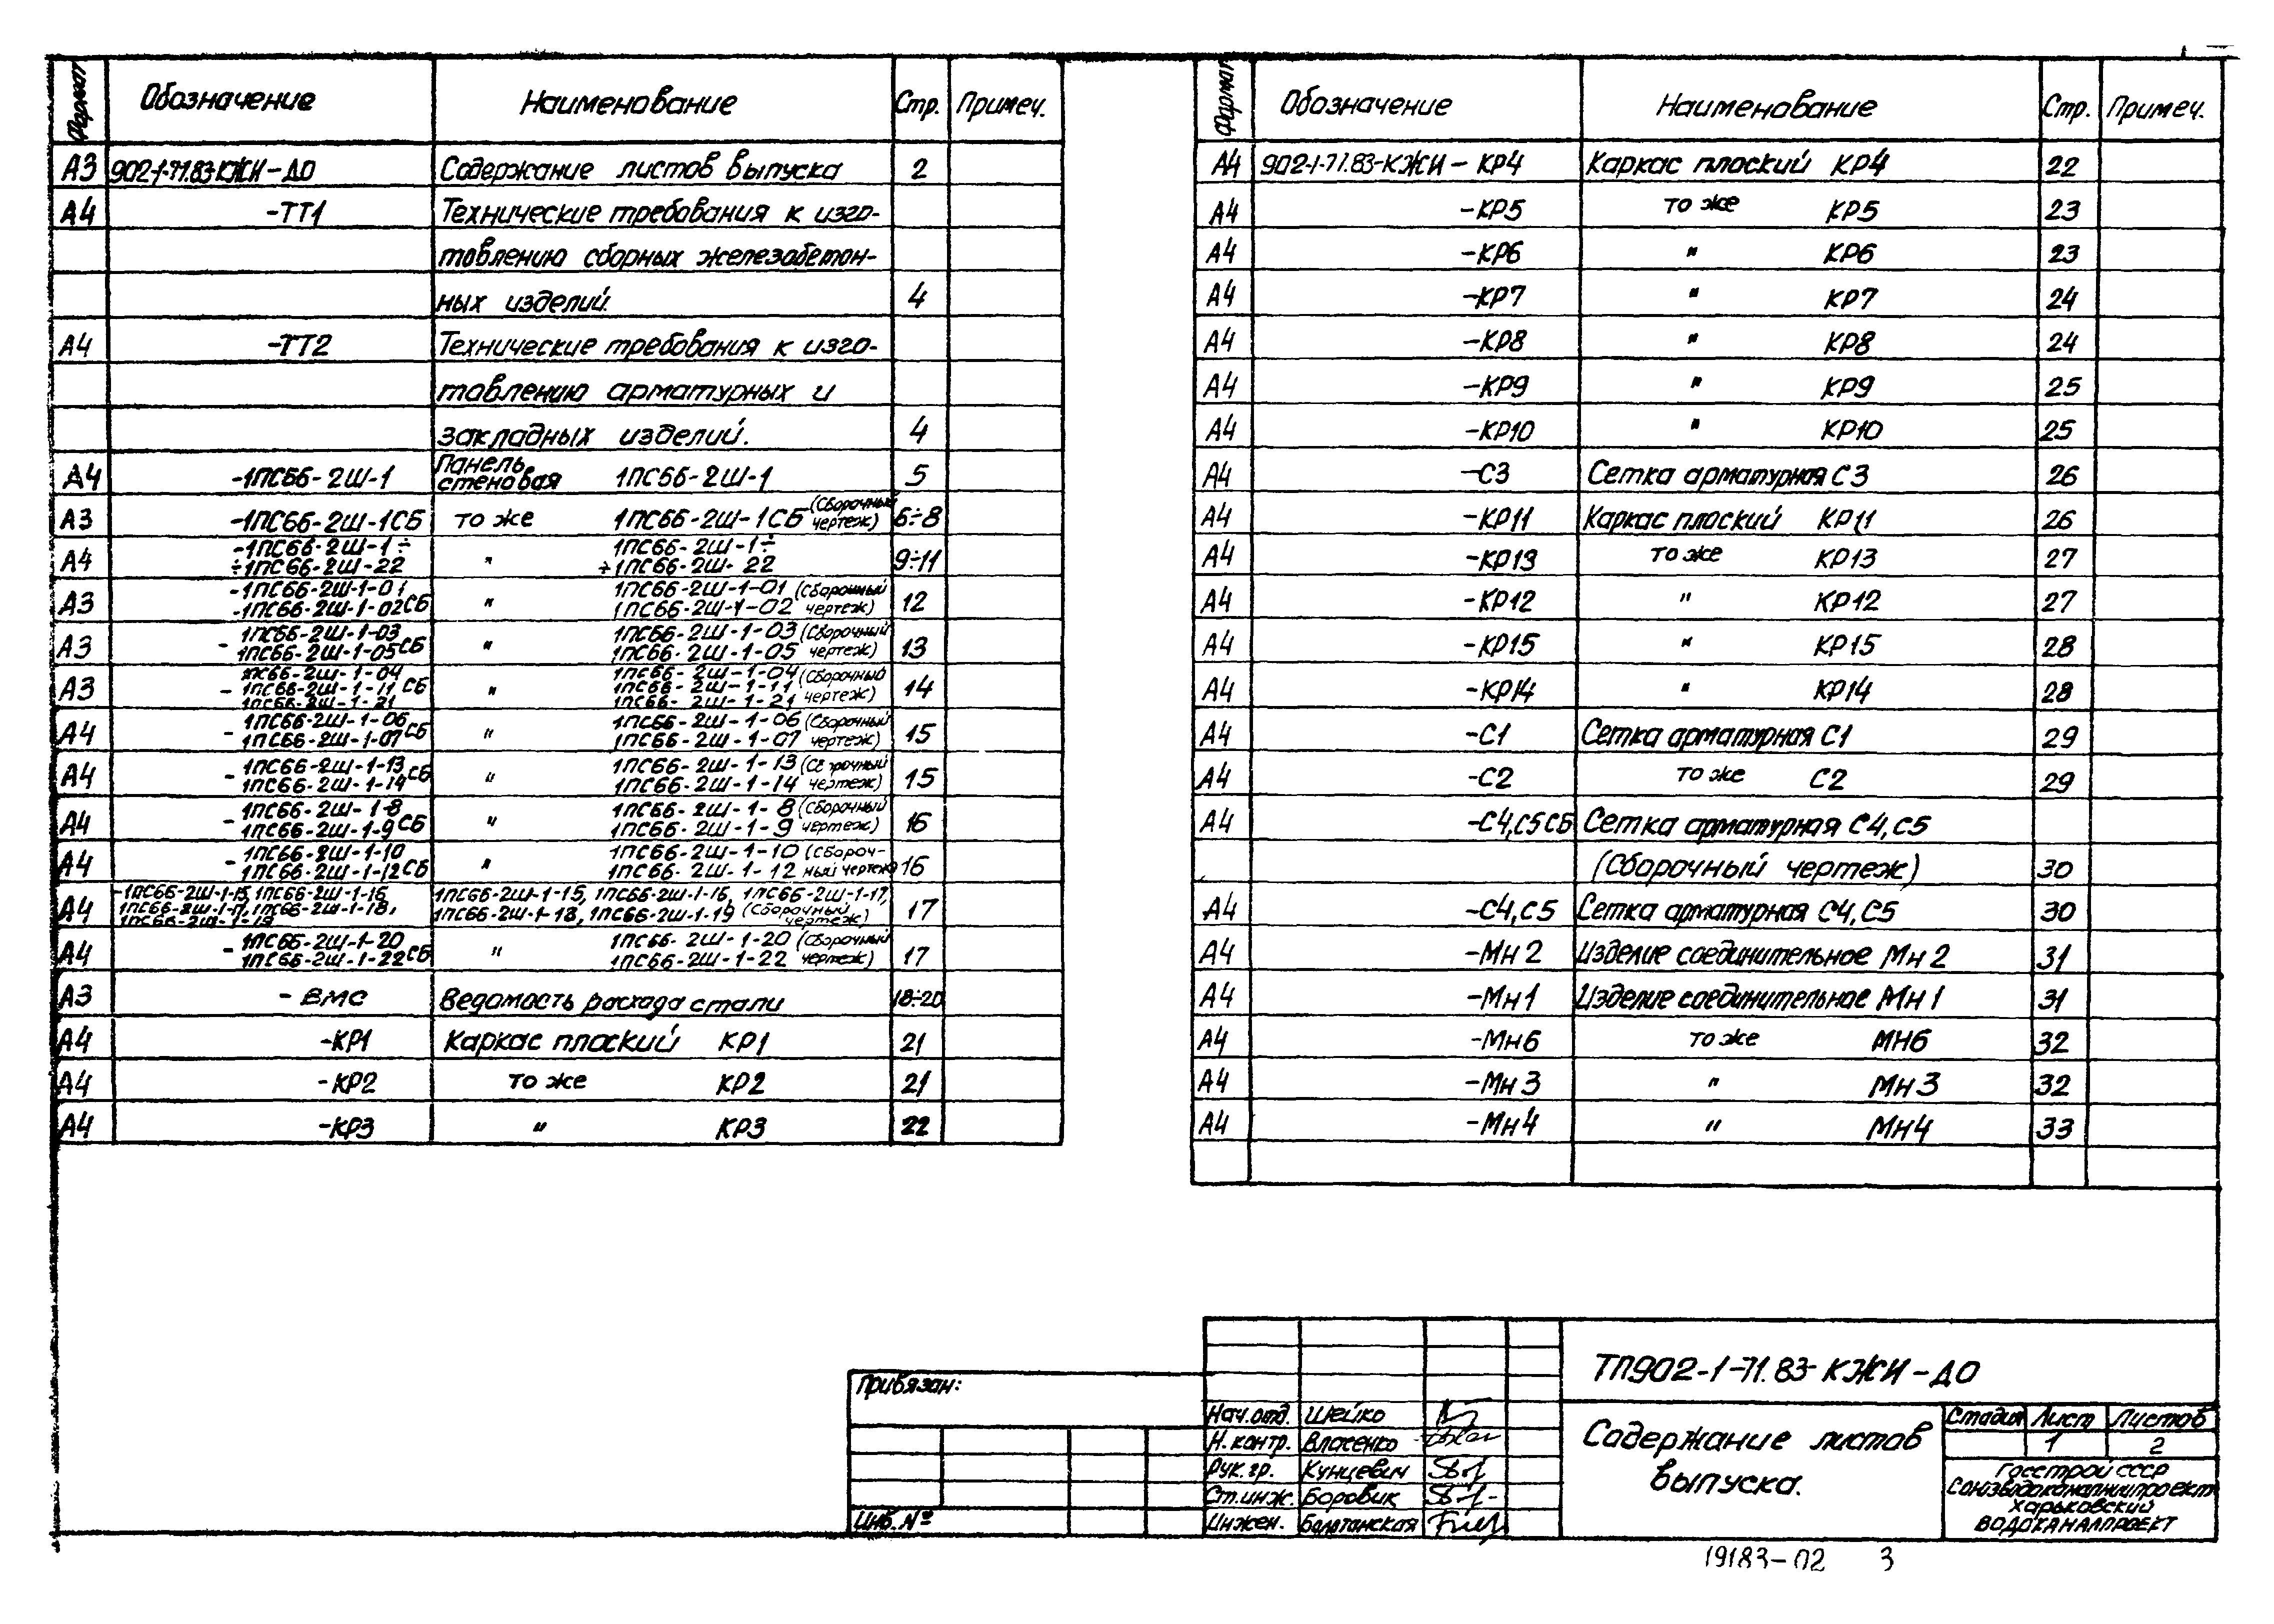 Формат Обозначение Наименование Стр. Примеч.
А3 902-1-71.83-КЖИ-ДО Содержание листов выпуска 2
А4 -ТТ1 Технические требования к изго-
товлению сборных железобетон-
ных изделий. 4
А4 -ТТ2 Технические требования к изго-
товлению арматурных и
закладных изделий. 4
А4 -1ПС66-2Ш-1 Панель стеновая 1ПС66-2Ш-1 5
А3 -1ПС66-2Ш-1СБ то же 1ПС66-2Ш-1СБ (Сборочный чертеж) 6÷8
А4 -1ПС66-2Ш-1÷ ÷1ПС66-2Ш-22 " 1ПС66-2Ш-1÷ ÷1ПС66-2Ш-22 9÷11
А3 -1ПС66-2Ш-1-01 -1ПС66-2Ш-1-02СБ " 1ПС66-2Ш-1-01 1ПС66-2Ш-1-02 (Сборочный чертеж) 12
А3 - 1ПС66-2Ш-1-03 1ПС66-2Ш-1-05СБ " 1ПС66-2Ш-1-03 1ПС66-2Ш-1-05 (Сборочный чертеж) 13
А3 - 1ПС66-2Ш-1-04 1ПС66-2Ш-1-11 СБ 1ПС66-2Ш-1-21 " 1ПС66-2Ш-1-04 1ПС66-2Ш-1-11 1ПС66-2Ш-1-21 (Сборочный чертеж) 14
А4 - 1ПС66-2Ш-1-06 1ПС66-2Ш-1-07СБ " 1ПС66-2Ш-1-06 1ПС66-2Ш-1-07 (Сборочный чертеж) 15
А4 - 1ПС66-2Ш-1-13 1ПС66-2Ш-1-14СБ " 1ПС66-2Ш-1-13 1ПС66-2Ш-1-14 (Сборочный чертеж) 15
А4 - 1ПС66-2Ш-1-8 1ПС66-2Ш-1-9СБ " 1ПС66-2Ш-1-8 1ПС66-2Ш-1-9 (Сборочный чертеж) 16
А4 - 1ПС66-2Ш-1-10 1ПС66-2Ш-1-12СБ " 1ПС66-2Ш-1-10 1ПС66-2Ш-1-12 (Сборочный чертеж 16
А4 -1ПС66-2Ш-1-15, 1ПС66-2Ш-1-16, 1ПС66-2Ш-1-17, 1ПС66-2Ш-1-18, 1ПС66-2Ш-1-19 1ПС66-2Ш-1-15, 1ПС66-2Ш-1-16, 1ПС66-2Ш-1-17, 1ПС66-2Ш-1-18, 1ПС66-2Ш-1-19 (Сборочный чертеж) 17
А4 - 1ПС66-2Ш-1-20 1ПС66-2Ш-1-22СБ " 1ПС66-2Ш-1-20 1ПС66-2Ш-1-22 (Сборочный чертеж) 17
А3 - ВМС Ведомость расхода стали 18÷20
А4 -КР1 Каркас плоский КР1 21
А4 -КР2 то же КР2 21
А4 -КР3 " КР3 22
Формат Обозначение Наименование Стр. Примеч.
А4 902-1-71.83-КЖИ-КР4 Каркас плоский КР4 22
А4 -КР5 то же КР5 23
А4 -КР6 " КР6 23
А4 -КР7 " КР7 24
А4 -КР8 " КР8 24
А4 -КР9 " КР9 25
А4 -КР10 " КР10 25
А4 -С3 Сетка арматурная С3 26
А4 -КР11 Каркас плоский КР11 26
А4 -КР13 то же КР13 27
А4 -КР12 " КР12 27
А4 -КР15 " КР15 28
А4 -КР14 " КР14 28
А4 -С1 Сетка арматурная С1 29
А4 -С2 то же С2 29
А4 -С4,С5СБ Сетка арматурная С4,С5
(Сборочный чертеж) 30
А4 -С4,С5 Сетка арматурная С4,С5 30
А4 -Мн2 Изделие соединительное Мн2 31
А4 -Мн1 Изделие соединительное Мн1 31
А4 -Мн6 то же МН6 32
А4 -Мн3 " Мн3 32
А4 -Мн4 " Мн4 33
Привязан:
Инб. №
Нач.отд. Шейко
Н.контр. Власенко
Рук.гр. Кунцевич
Ст.инж. Боровик
Инжен. Болотанская
ТП902-1-71.83-КЖИ-ДО
Содержание листов
выпуска.
Стадия Лист Листов
1 2
Госстрой СССР
Союзводоканалниипроект
Харьковский
ВОДОКАНАЛПРОЕКТ
19183-02 3